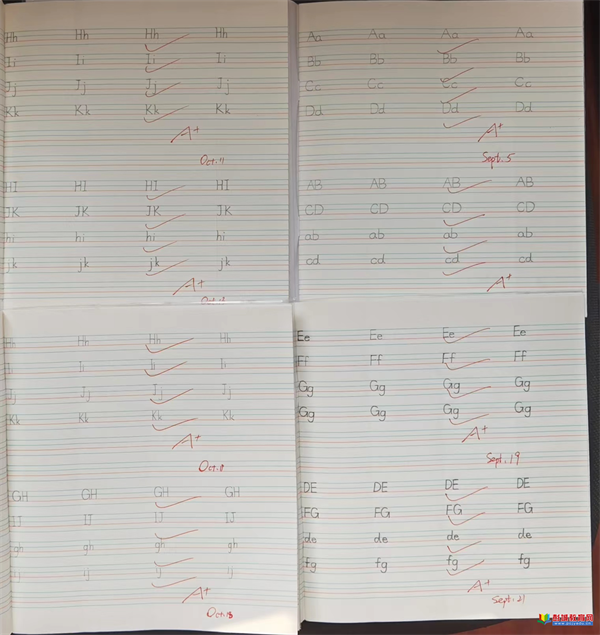 Hh Hh Hh Hh
Ii Ii Ii Ii
Jj Jj Jj Jj
Kk Kk Kk Kk
A+
Oct. 11
HI HI HI HI
JK JK JK JK
hi hi hi hi
jk jk jk jk
A+
Aa Aa Aa Aa
Bb Bb Bb Bb
Cc Cc Cc Cc
Dd Dd Dd Dd
A+
Sept. 5
AB AB AB AB
CD CD CD CD
ab ab ab ab
cd cd cd cd
A+
Hh Hh Hh Hh
Ii Ii Ii Ii
Jj Jj Jj Jj
Kk Kk Kk Kk
A+
GH GH GH GH
IJ IJ IJ IJ
gh gh gh gh
ij ij ij ij
A+
Oct. 13
Ee Ee Ee Ee
Ff Ff Ff Ff
Gg Gg Gg Gg
Gg Gg Gg Gg
A+
Sept. 19
DE DE DE DE
FG FG FG FG
de de de de
fg fg fg fg
A+
Sept. 21